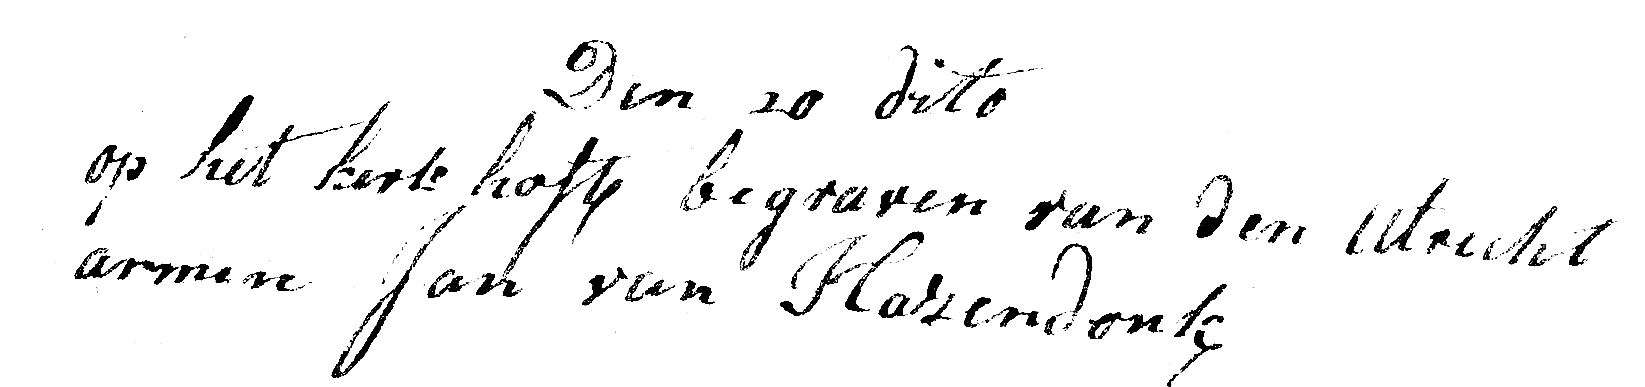 Den 20 dito
op het kerk hoff begraven van den Utrecht
armen Jan van Hazendonk